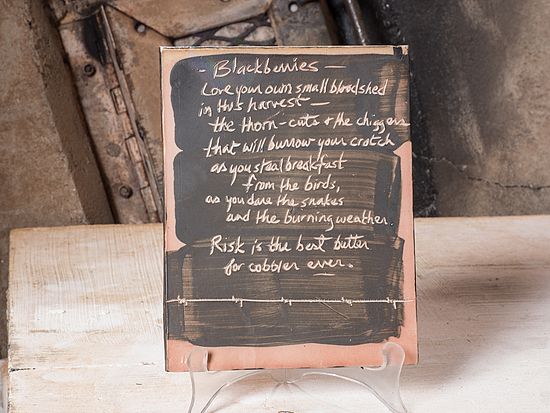 - Blackberries -
Love your own small bloodshed
in this harvest -
the thorn-cuts & the chiggers
that will burrow your crotch
as you steal breakfast
from the birds,
as you dare the snakes
and the burning weather.
Risk is the best butter
for cobbler ever.